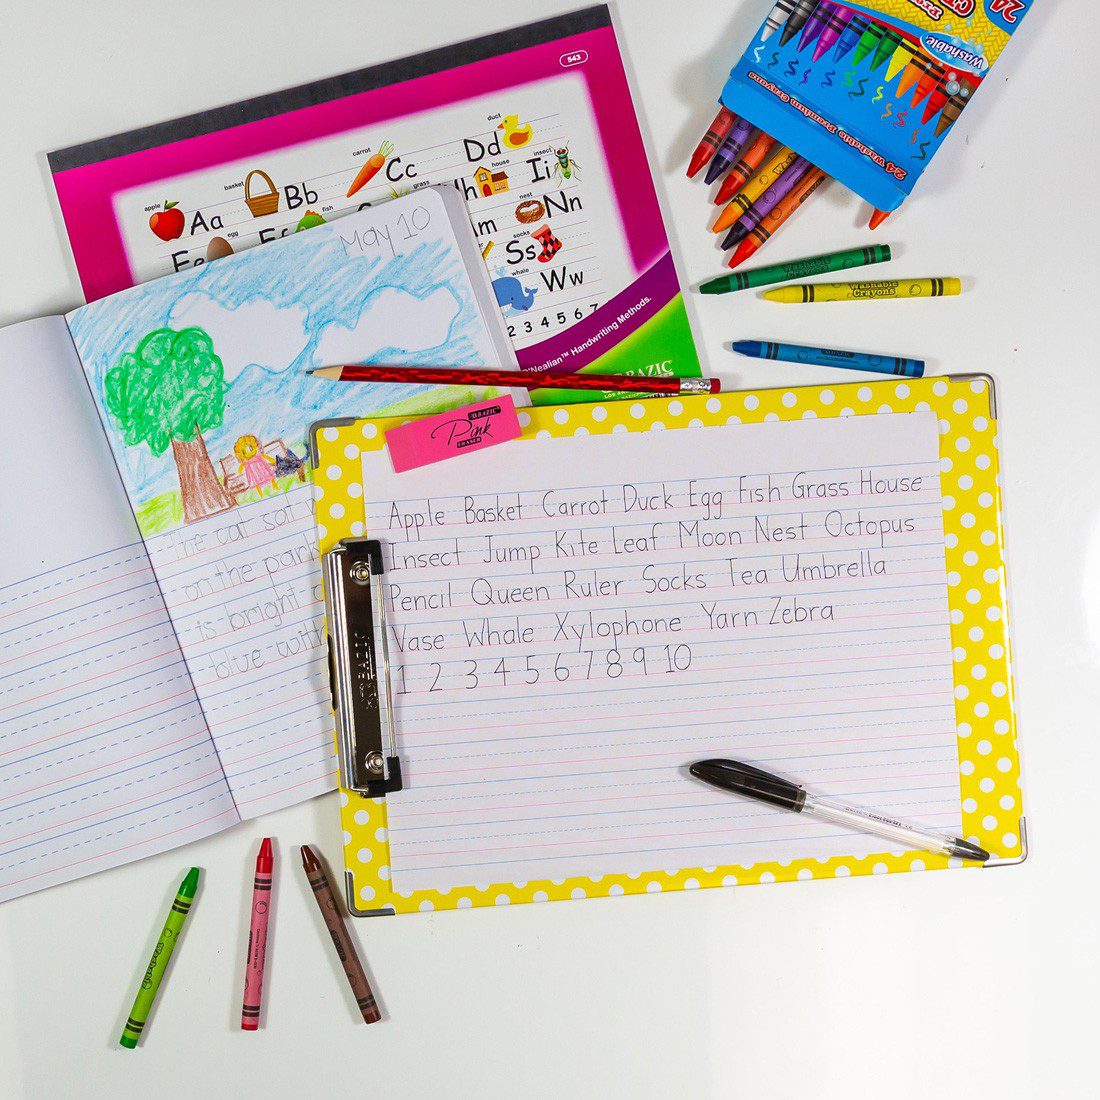 543
duct
Dd
carrot
Cc
basket
Bb
apple
Aa
insect
Ii
house
Hh
grass
fish
Ff
egg
Ee
nest
Nn
Mm
socks
Ss
whale
Ww
2 3 4 5 6 7 8
Nealian™ Handwriting Methods.
BAZIC
May 10
the cat sat
on the park
is bright
blue with
BAZIC
Pink
ERASER
Apple Basket Carrot Duck Egg Fish Grass House
Insect Jump Kite Leaf Moon Nest Octopus
Pencil Queen Ruler Socks Tea Umbrella
Vase Whale Xylophone Yarn Zebra
1 2 3 4 5 6 7 8 9 10
BAZIC
24
Washable
24 Washable Premium Crayons
Washable
Crayons
Washable
Crayons
BAZIC